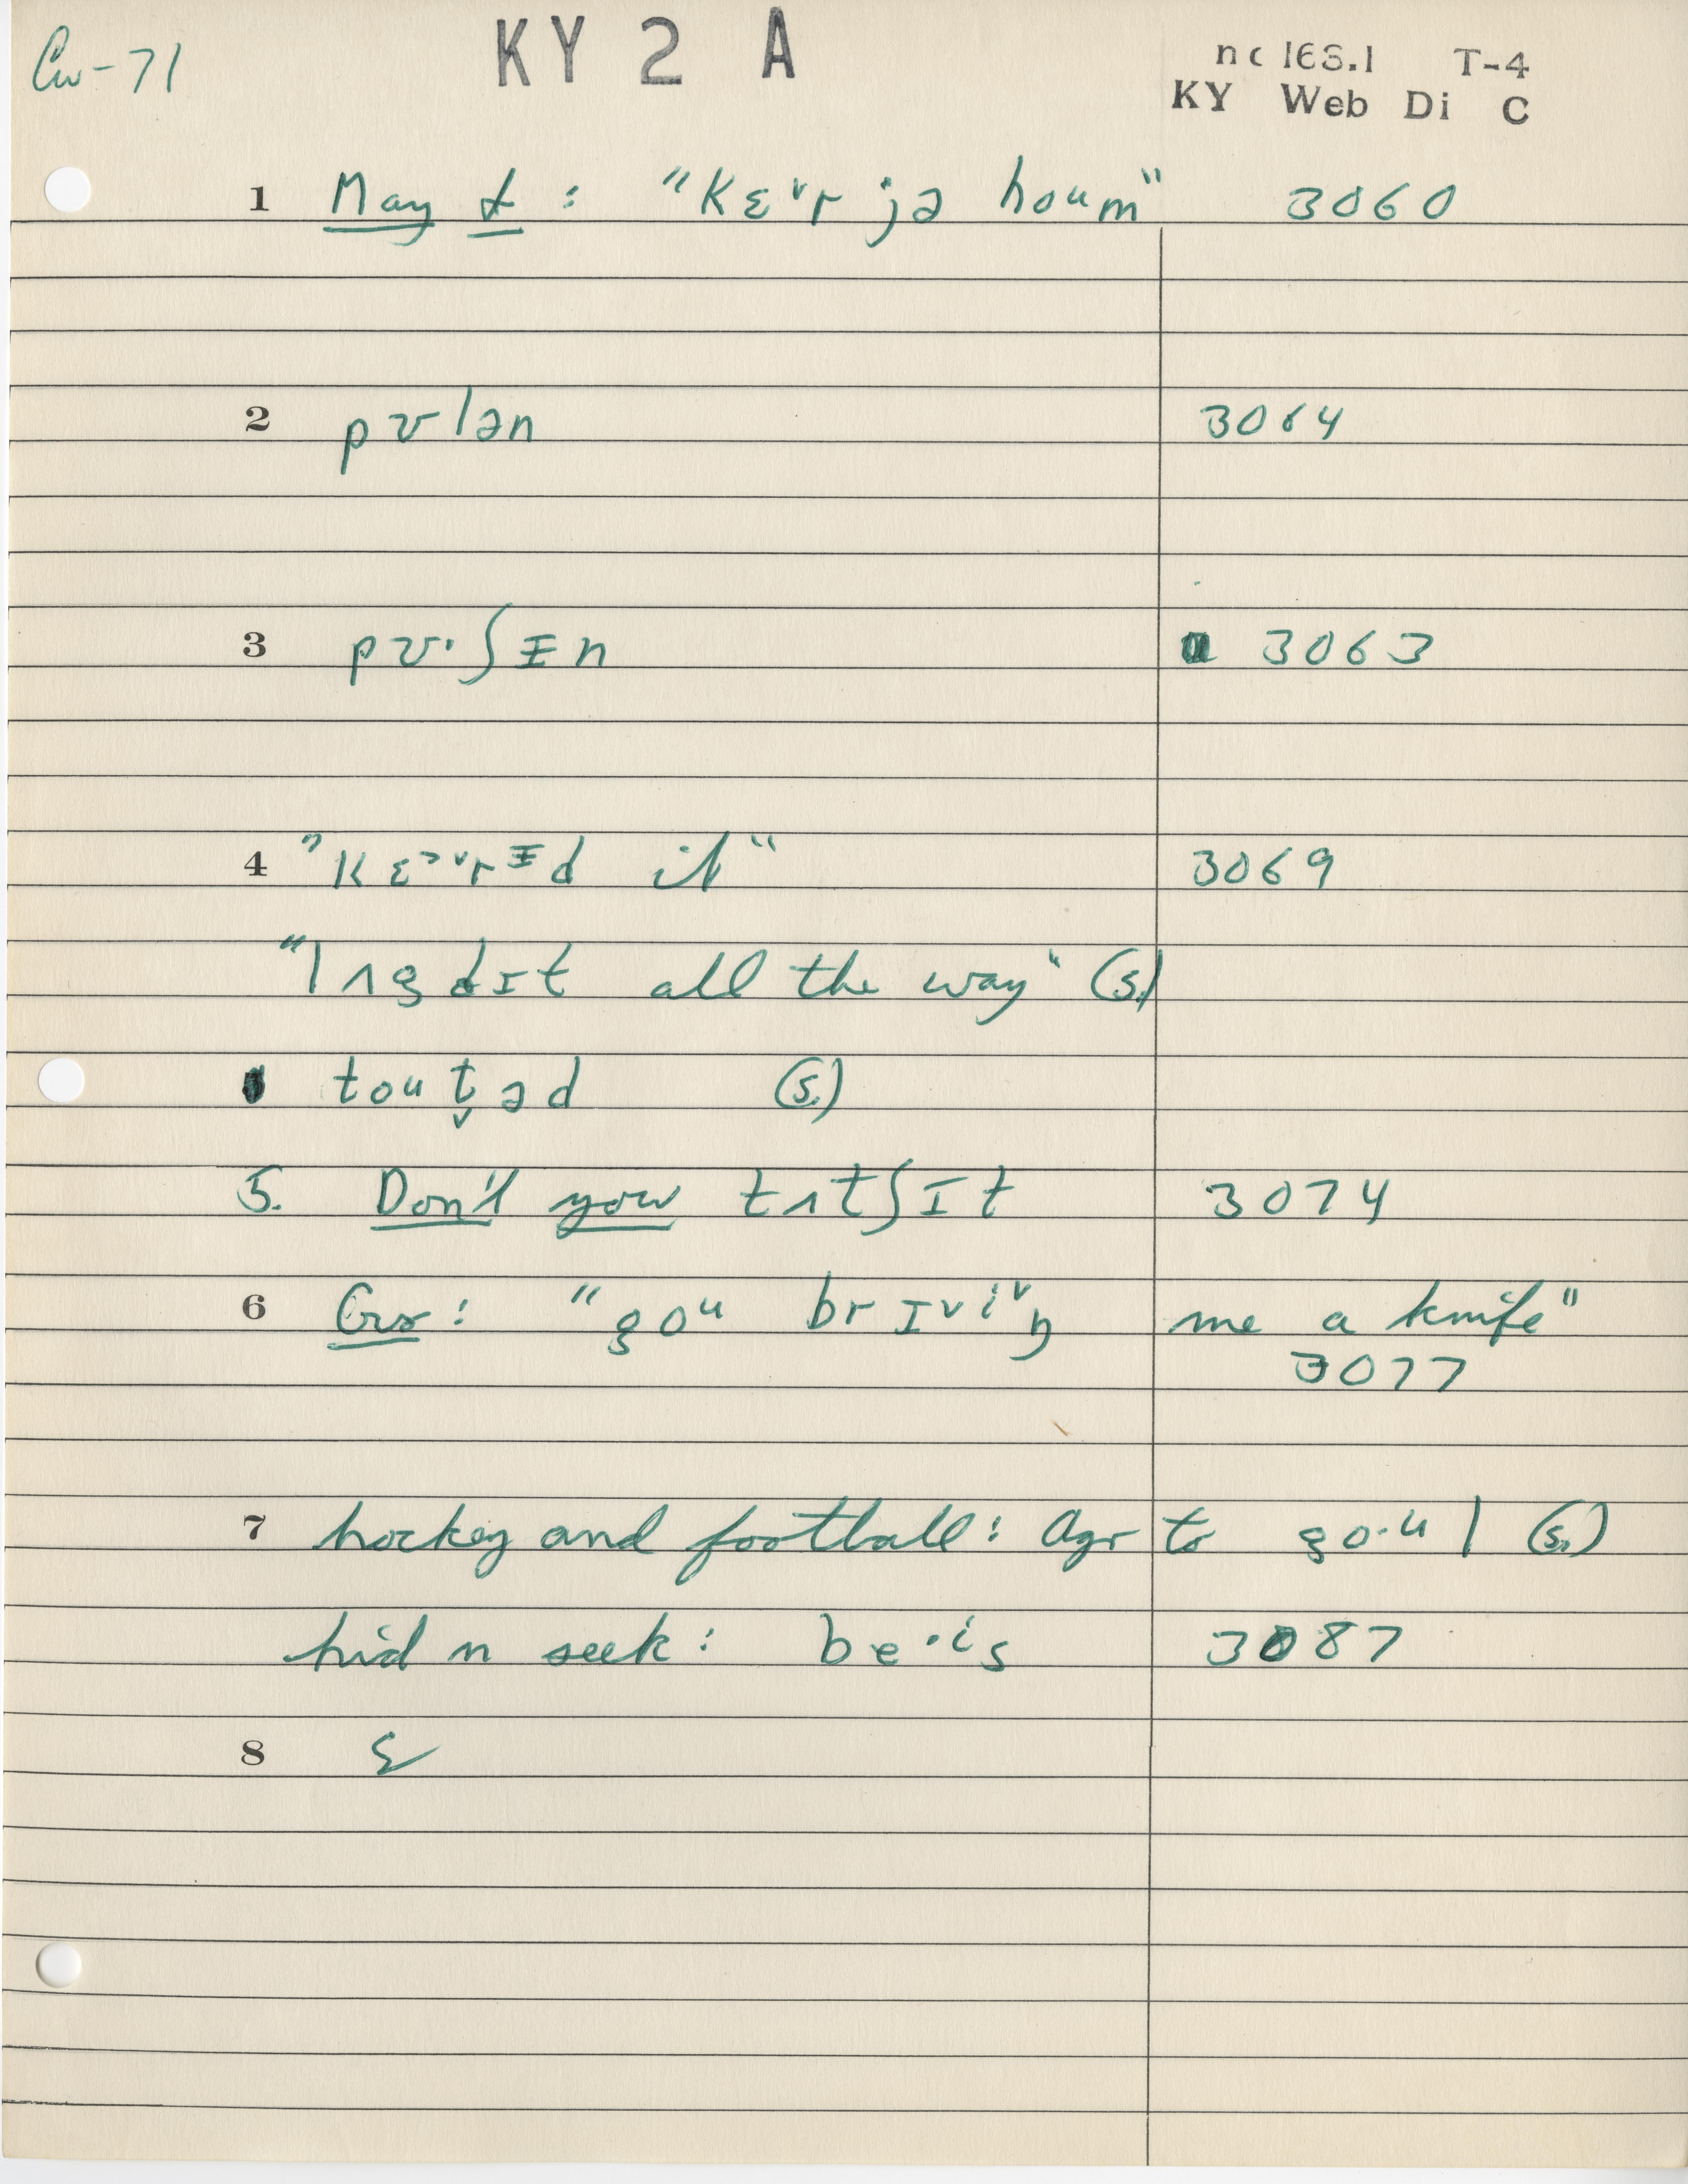 Cw-71 KY 2 A nc 168.1 T-4
KY Web Di C
1 May I : "kɛ˅r jə houm" 3060
2 pʊlən 3064
3 pʊ·ʃɪn 3063
4 "kɛ>˅rɪd it" 3069
"lʌgdɪt all the way" (s.)
toutəd (s.)
5. Don't you tʌtʃ ɪt 3074
6 Grs: "goᵘ brɪ˅ⁱ˅ŋ me a knife"
3077
7 hockey and football: Agr to go·ᵘl (s.)
hid n seek: be·ⁱs 3087
8